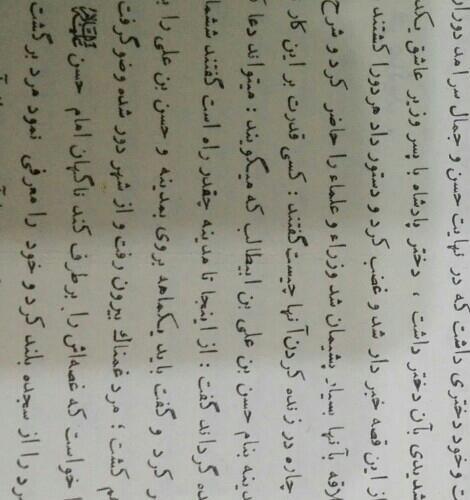 و خود دختری داشت که در نهایت حسن و جمال سرامد دوران
شدیدی بآن دختر داشت ، دختر پادشاه با پسر وزیر عاشق
از این قصه خبر دار شد و غضب کرد و دستور داد هر دو را کشتند
بآنها بسیار پشیمان شد وزراء و علماء را حاضر کرد و شرح
چاره در زنده کردن آنها چیست گفتند : کسی قدرت بر این کار
بنام حسن بن علی بن ابیطالب که میگویند : میتواند دعا
گرداند گفت : از اینجا تا مدینه چقدر راه است گفتند
کرد و گفت باید یکماهه بروی بمدینه و حسن بن علی را
کشت ؛ مرد غمناك بیرون رفت و از شهر دور شده وضو گرفت
خواست که غصه‌اش را برطرف کند ناگهان امام حسن
را از سجده بلند کرد و خود را معرفی نمود مرد برگشت